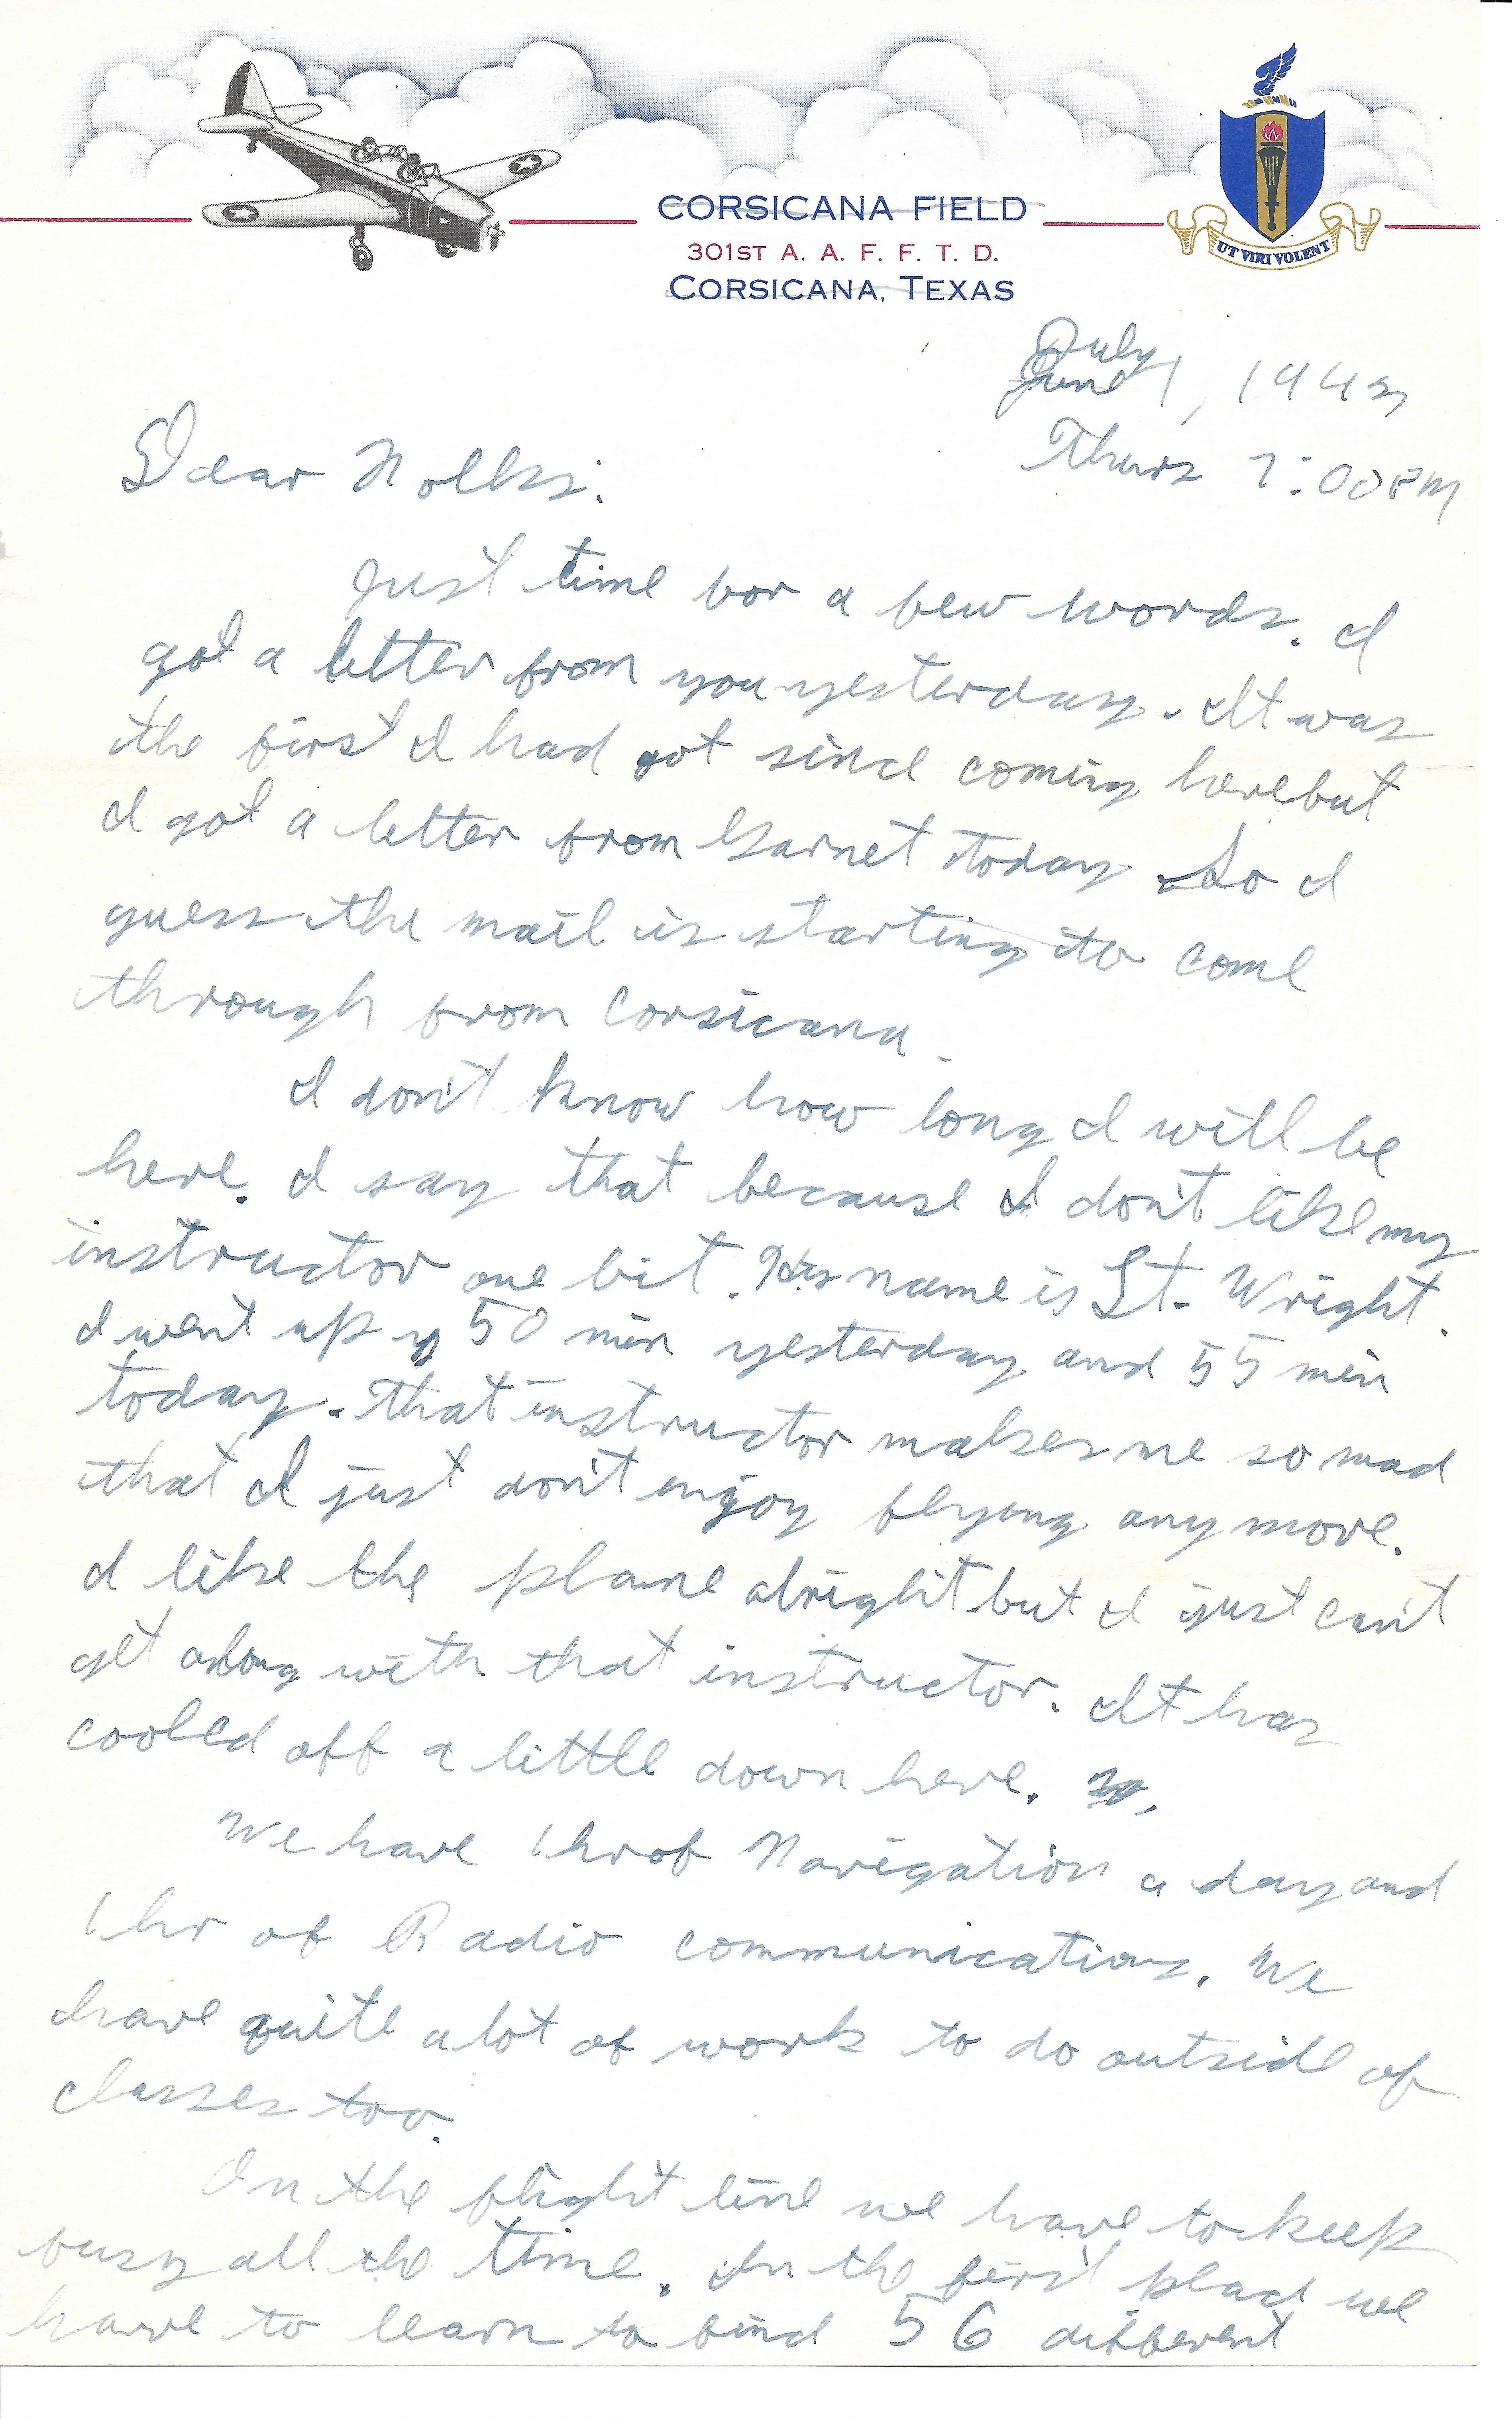 CORSICANA FIELD
301ST A. A. F. F. T. D.
CORSICANA, TEXAS
UT VIRI VOLENT
July
June 1, 1943
Thurs 7:00 PM
Dear Folks:
Just time for a few words. I
got a letter from you yesterday. It was
the first I had got since coming here but
I got a letter from Garnet today So I
guess the mail is starting to come
through from Corsicana.
I don't know how long I will be
here. I say that because I don't like my
instructor one bit. His name is Lt. Wright.
I went up 50 min yesterday and 55 min
today. That instructor makes me so mad
that I just don't enjoy flying any more.
I like the plane alright but I just can't
get along with that instructor. It has
cooled off a little down here.
We have 1 hr of Navigation a day and
1 hr of Radio communications. We
have quite a lot of work to do outside of
classes too.
On the flight line we have to keep
busy all the time. In the first place we
have to learn to find 56 different